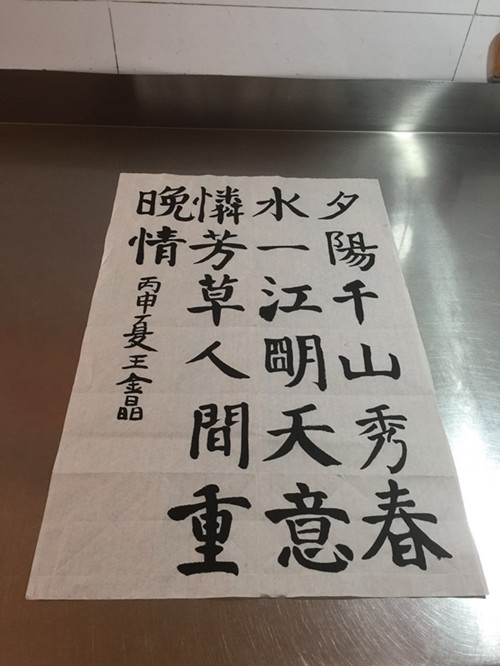 夕陽千山秀春
水一江明天意
憐芳草人間重
晚情
丙申夏王金晶